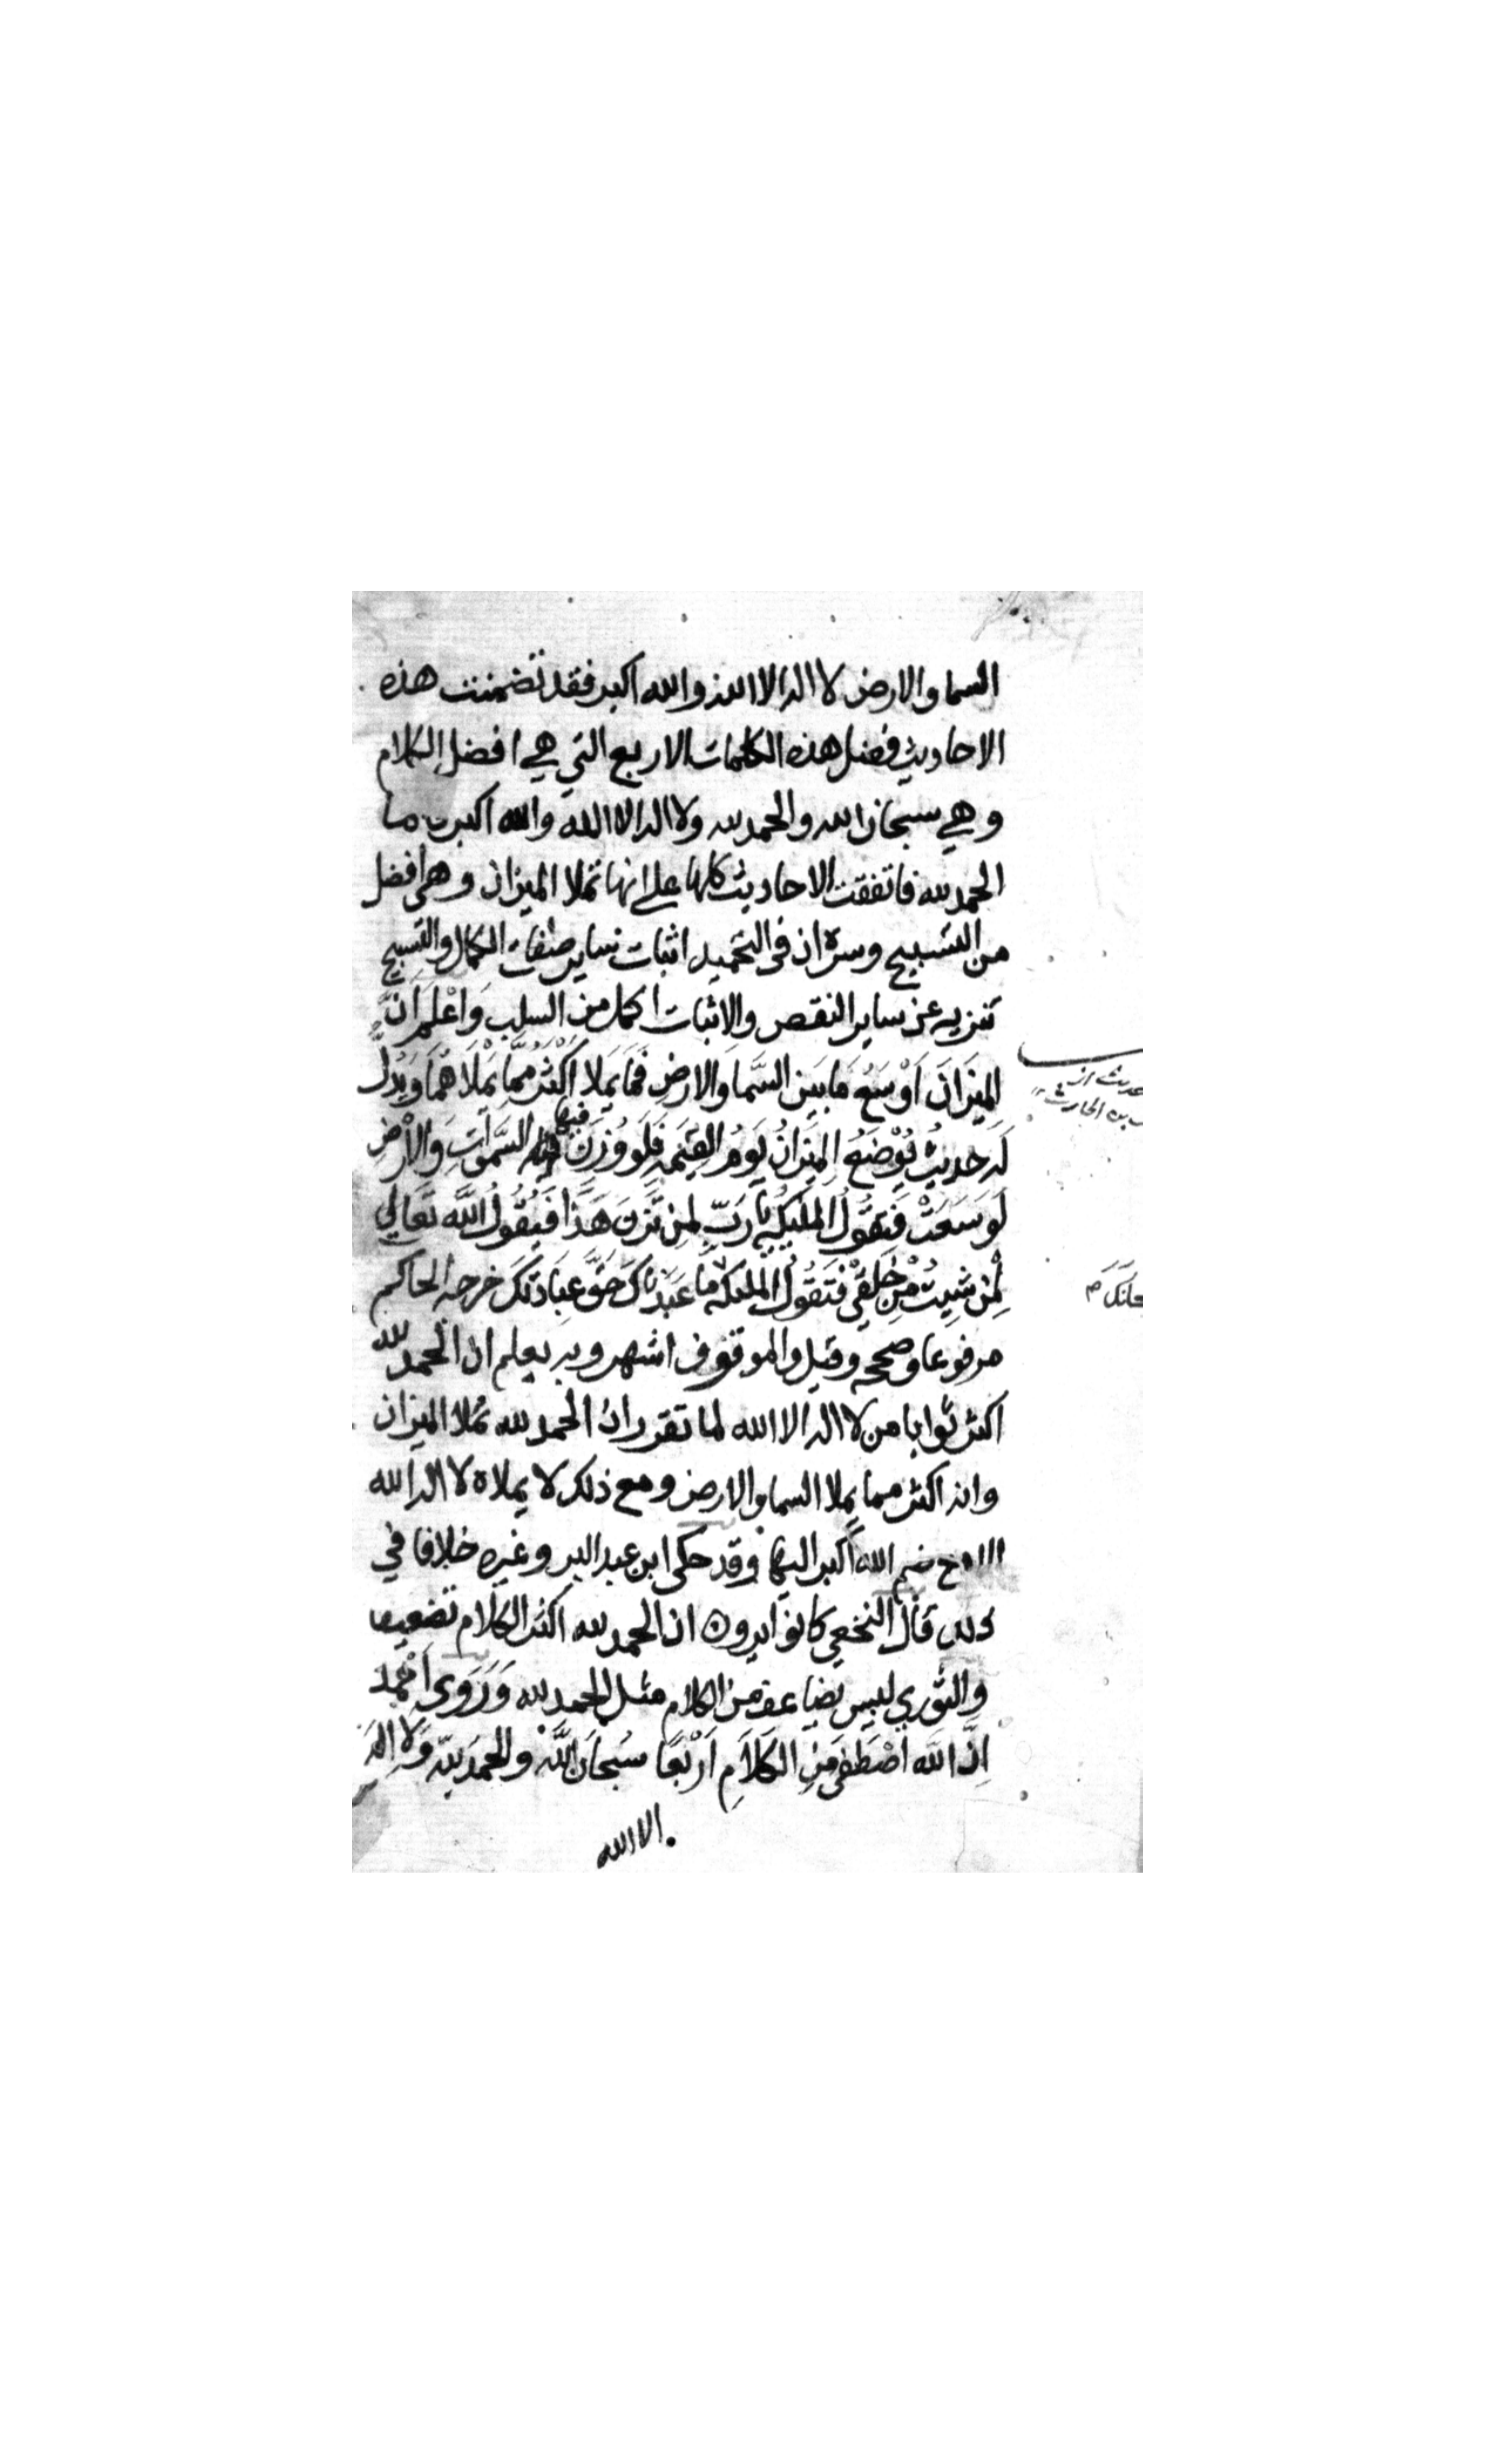 السما والارض لا اله الا الله والله اكبر فقد تضمنت هذه
الاحاديث فضل هذه الكلمات الاربع التي هي افضل الكلام
وهي سبحان الله والحمد لله ولا اله الا الله والله اكبر ما
الحمد لله فاتفقت الاحاديث كلها على انها تملا الميزان وهى افضل
من التسبيح وسره ان فى التحميد اثبات ساير صفات الكمال والتسبيح
تنزيه عن ساير النقص والاثبات اكمل من السلب وَاعْلَم اَنَّ
المِيْزَانَ اَوْسَعُ مَا بَيَن السَّمَا وَالارضِ فَمَا يَملا اَكْثَرُ مِمَّا يَمْلَا هُمَا وَيَدُلُّ
لَه حديثُ يُوْضَعُ المِيَزانُ يَوَم القِيَمه فَلَو وُزِنَ فيها السَّمَوَاتِ وَالاَرْضِ
لَوَسَعَتْ فَتقُوُل المَليكه يَا رَبِّ لِمِن تَزِن هَذَا فَيَقُوُل اللَّه تَعَالي
لِمِن شِيتُ مِنْ خَلقِيْ فَتَقُوُل المَليكه مَا عَبَدْنَاكَ حَقَّ عِبَادَتكَ خرجه الحاكم
مرفوعا وصححه وقيل والموقوف اشهر وبه يعلم ان الحمد لله
اكثر ثوابا من لا اله الا الله لما تقرر ان الحمد لله تملا الميزان
وانه اكثر مما يملا السما والارض ومع ذلك لا يملاه لا اله الله
ضم الله اكبر اليها وقد حكى ابن عبد البر وغيره خلافا في
ذلك قال النخعي كانوا يرون ان الحمد لله اكثر الكلام تضعيفا
والثوري ليس يضاعف من الكلام مثل الحمد لله وَرَوَى اَحْمَد
اِنَّ اللَّه اصْطَفَى مِنِ الكَلَامِ اَرْبَعًا سُبحَان اللَّه والحَمد للّه وَلا اله
الا الله
حديث ان
بن الحارث
حانَكَ م